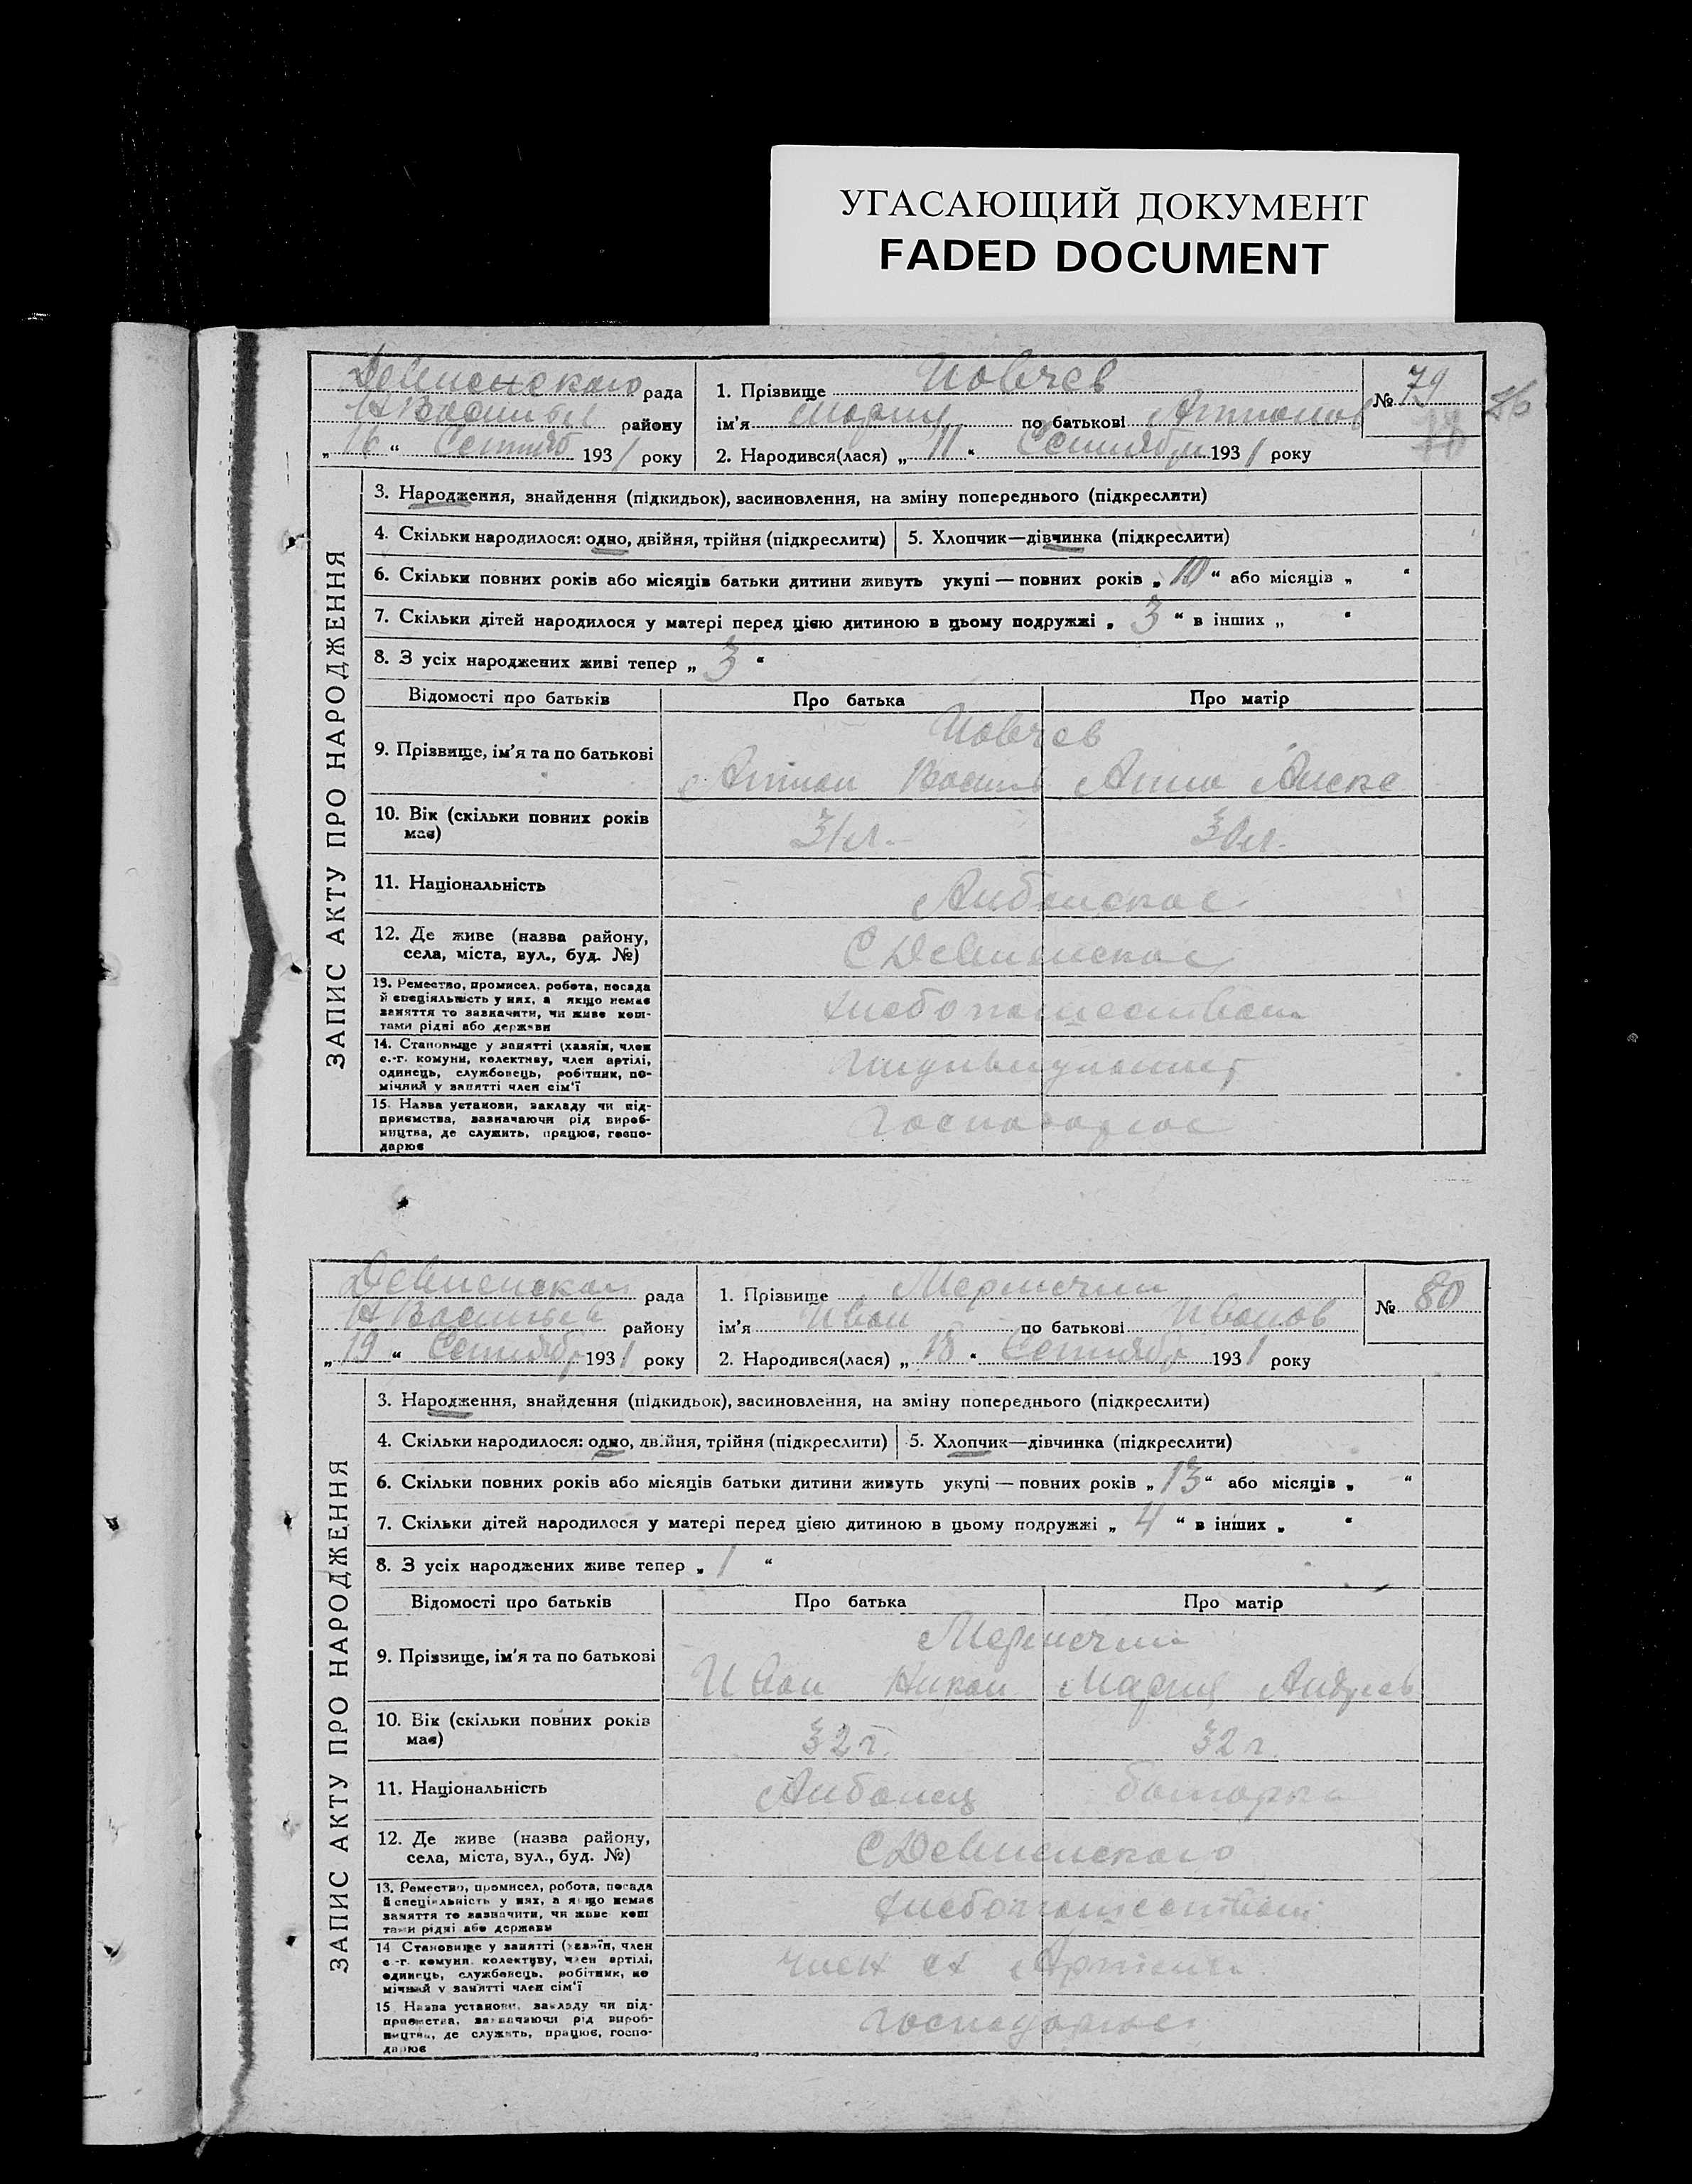 УГАСАЮЩИЙ ДОКУМЕНТ
FADED DOCUMENT
Девненского рада
района
„ 16 “ Сентяб 1931 року
1. Прізвище Иовчев
ім'я Мария по батькові Антонов
2. Народився(лася) „ 11 “ Сентября 1931 року
№ 79
78
86
ЗАПИС АКТУ ПРО НАРОДЖЕННЯ
3. Народження, знайдення (підкидьок), засиновлення, на зміну попереднього (підкреслити)
4. Скільки народилося: одно, двійня, трійня (підкреслити)
5. Хлопчик—дівчинка (підкреслити)
6. Скільки повних років або місяців батьки дитини живуть укупі — повних років „ 10 “ або місяців „ “
7. Скільки дітей народилося у матері перед цією дитиною в цьому подружжі „ 3 “ в інших „ “
8. З усіх народжених живі тепер „ 3 “
Відомості про батьків
Про батька
Про матір
9. Прізвище, ім'я та по батькові
Иовчев
Антон Васил
Анна
10. Вік (скільки повних років
має)
31 л.
30 л.
11. Національність
12. Де живе (назва району,
села, міста, вул., буд. №)
С Девненское
13. Ремество, промисел, робота, посада
й спеціяльність у них, а якщо немає
заняття то зазначити, чи живе кош-
тами рідні або держави
14. Становище у занятті (хазяїн, член
с.-г. комуни, колективу, член артілі,
одинець, службовець, робітник, по-
мічний у занятті член сім'ї
15. Назва установи, закладу чи під-
приємства, зазначаючи рід вироб-
ництва, де служить, працює, госпо-
дарює
рада
района
„ 19 “ Сентябр 1931 року
1. Прізвище
ім'я Иван по батькові Иванов
2. Народився(лася) „ 18 “ Сентябр 1931 року
№ 80
ЗАПИС АКТУ ПРО НАРОДЖЕННЯ
3. Народження, знайдення (підкидьок), засиновлення, на зміну попереднього (підкреслити)
4. Скільки народилося: одно, двійня, трійня (підкреслити)
5. Хлопчик—дівчинка (підкреслити)
6. Скільки повних років або місяців батьки дитини живуть укупі — повних років „ 13 “ або місяців „ “
7. Скільки дітей народилося у матері перед цією дитиною в цьому подружжі „ 4 “ в інших „ “
8. З усіх народжених живе тепер „ 1 “
Відомості про батьків
Про батька
Про матір
9. Прізвище, ім'я та по батькові
Иван Никол
Мария Андреев
10. Вік (скільки повних років
має)
32 г.
32 г
11. Національність
Албанец
болгарка
12. Де живе (назва району,
села, міста, вул., буд. №)
С Девненского
13. Ремество, промисел, робота, посада
й спеціяльність у них, а якщо немає
заняття то зазначити, чи живе кош
тами рідні або держави
14 Становище у занятті (хазяїн, член
с.-г. комуни колективу, член артілі,
одинець, службовець, робітник, по
мічний у занятті член сім'ї
член сх Артели
15 Назва установи, закладу чи під-
приємства, зазначаючи рід вироб-
ництва, де служить, працює, госпо-
дарює